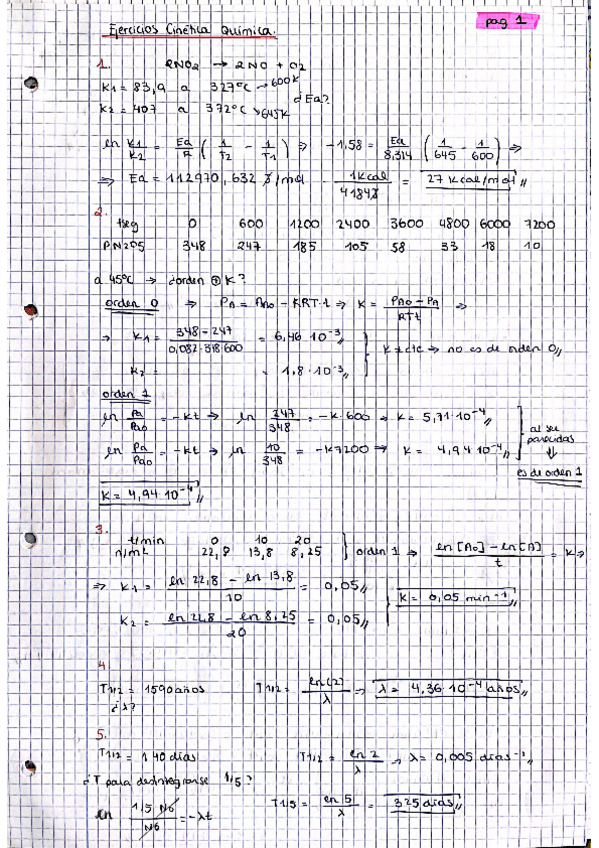 pag 1
Ejercicios Cinética Química.
1. 2NO2 → 2NO + O2
K1 = 83,9 a 327ºC → 600K
K2 = 407 a 372ºC → 645K
¿Ea?
ln K1/K2 = Ea/R ( 1/T2 - 1/T1 ) ⇒ -1,58 = Ea/8,314 ( 1/645 - 1/600 ) ⇒
⇒ Ea = 112970,632 J/mol · 1Kcal/4184J = 27 Kcal/mol
2.
tseg 0 600 1200 2400 3600 4800 6000 7200
PN2O5 348 247 185 105 58 33 18 10
a 45ºC → ¿orden ⊕ K?
orden 0 ⇒ PA = PAo - KRT·t ⇒ K = PAo - PA/RTt ⇒
⇒ K1 = 348 - 247/0,082·318·600 = 6,46·10⁻³
K ≠ cte ⇒ no es de orden 0
K2 = = 1,8·10⁻³
orden 1
ln Pa/Pao = -Kt → ln 247/348 = -K·600 → K = 5,71·10⁻⁴
ln Pa/Pao = -Kt → ln 10/348 = -K7200 ⇒ K = 4,94·10⁻⁴
al ser parecidas
⇓
es de orden 1
K = 4,94·10⁻⁴
3.
t/min 0 10 20
22,8 13,8 8,25
orden 1 ⇒ ln[Ao] - ln[A]/t = K ⇒
⇒ K1 = ln 22,8 - ln 13,8/10 = 0,05
K2 = ln 22,8 - ln 8,25/20 = 0,05
K = 0,05 min⁻¹
4
T1/2 = 1590 años T1/2 = ln(2)/λ → λ = 4,36·10⁻⁴ años
¿λ?
5.
T1/2 = 140 días T1/2 = ln 2/λ → λ = 0,005 días⁻¹
¿T para desintegrarse 1/5?
ln 1/5 No/No = -λt T1/5 = ln 5/λ = 325 días